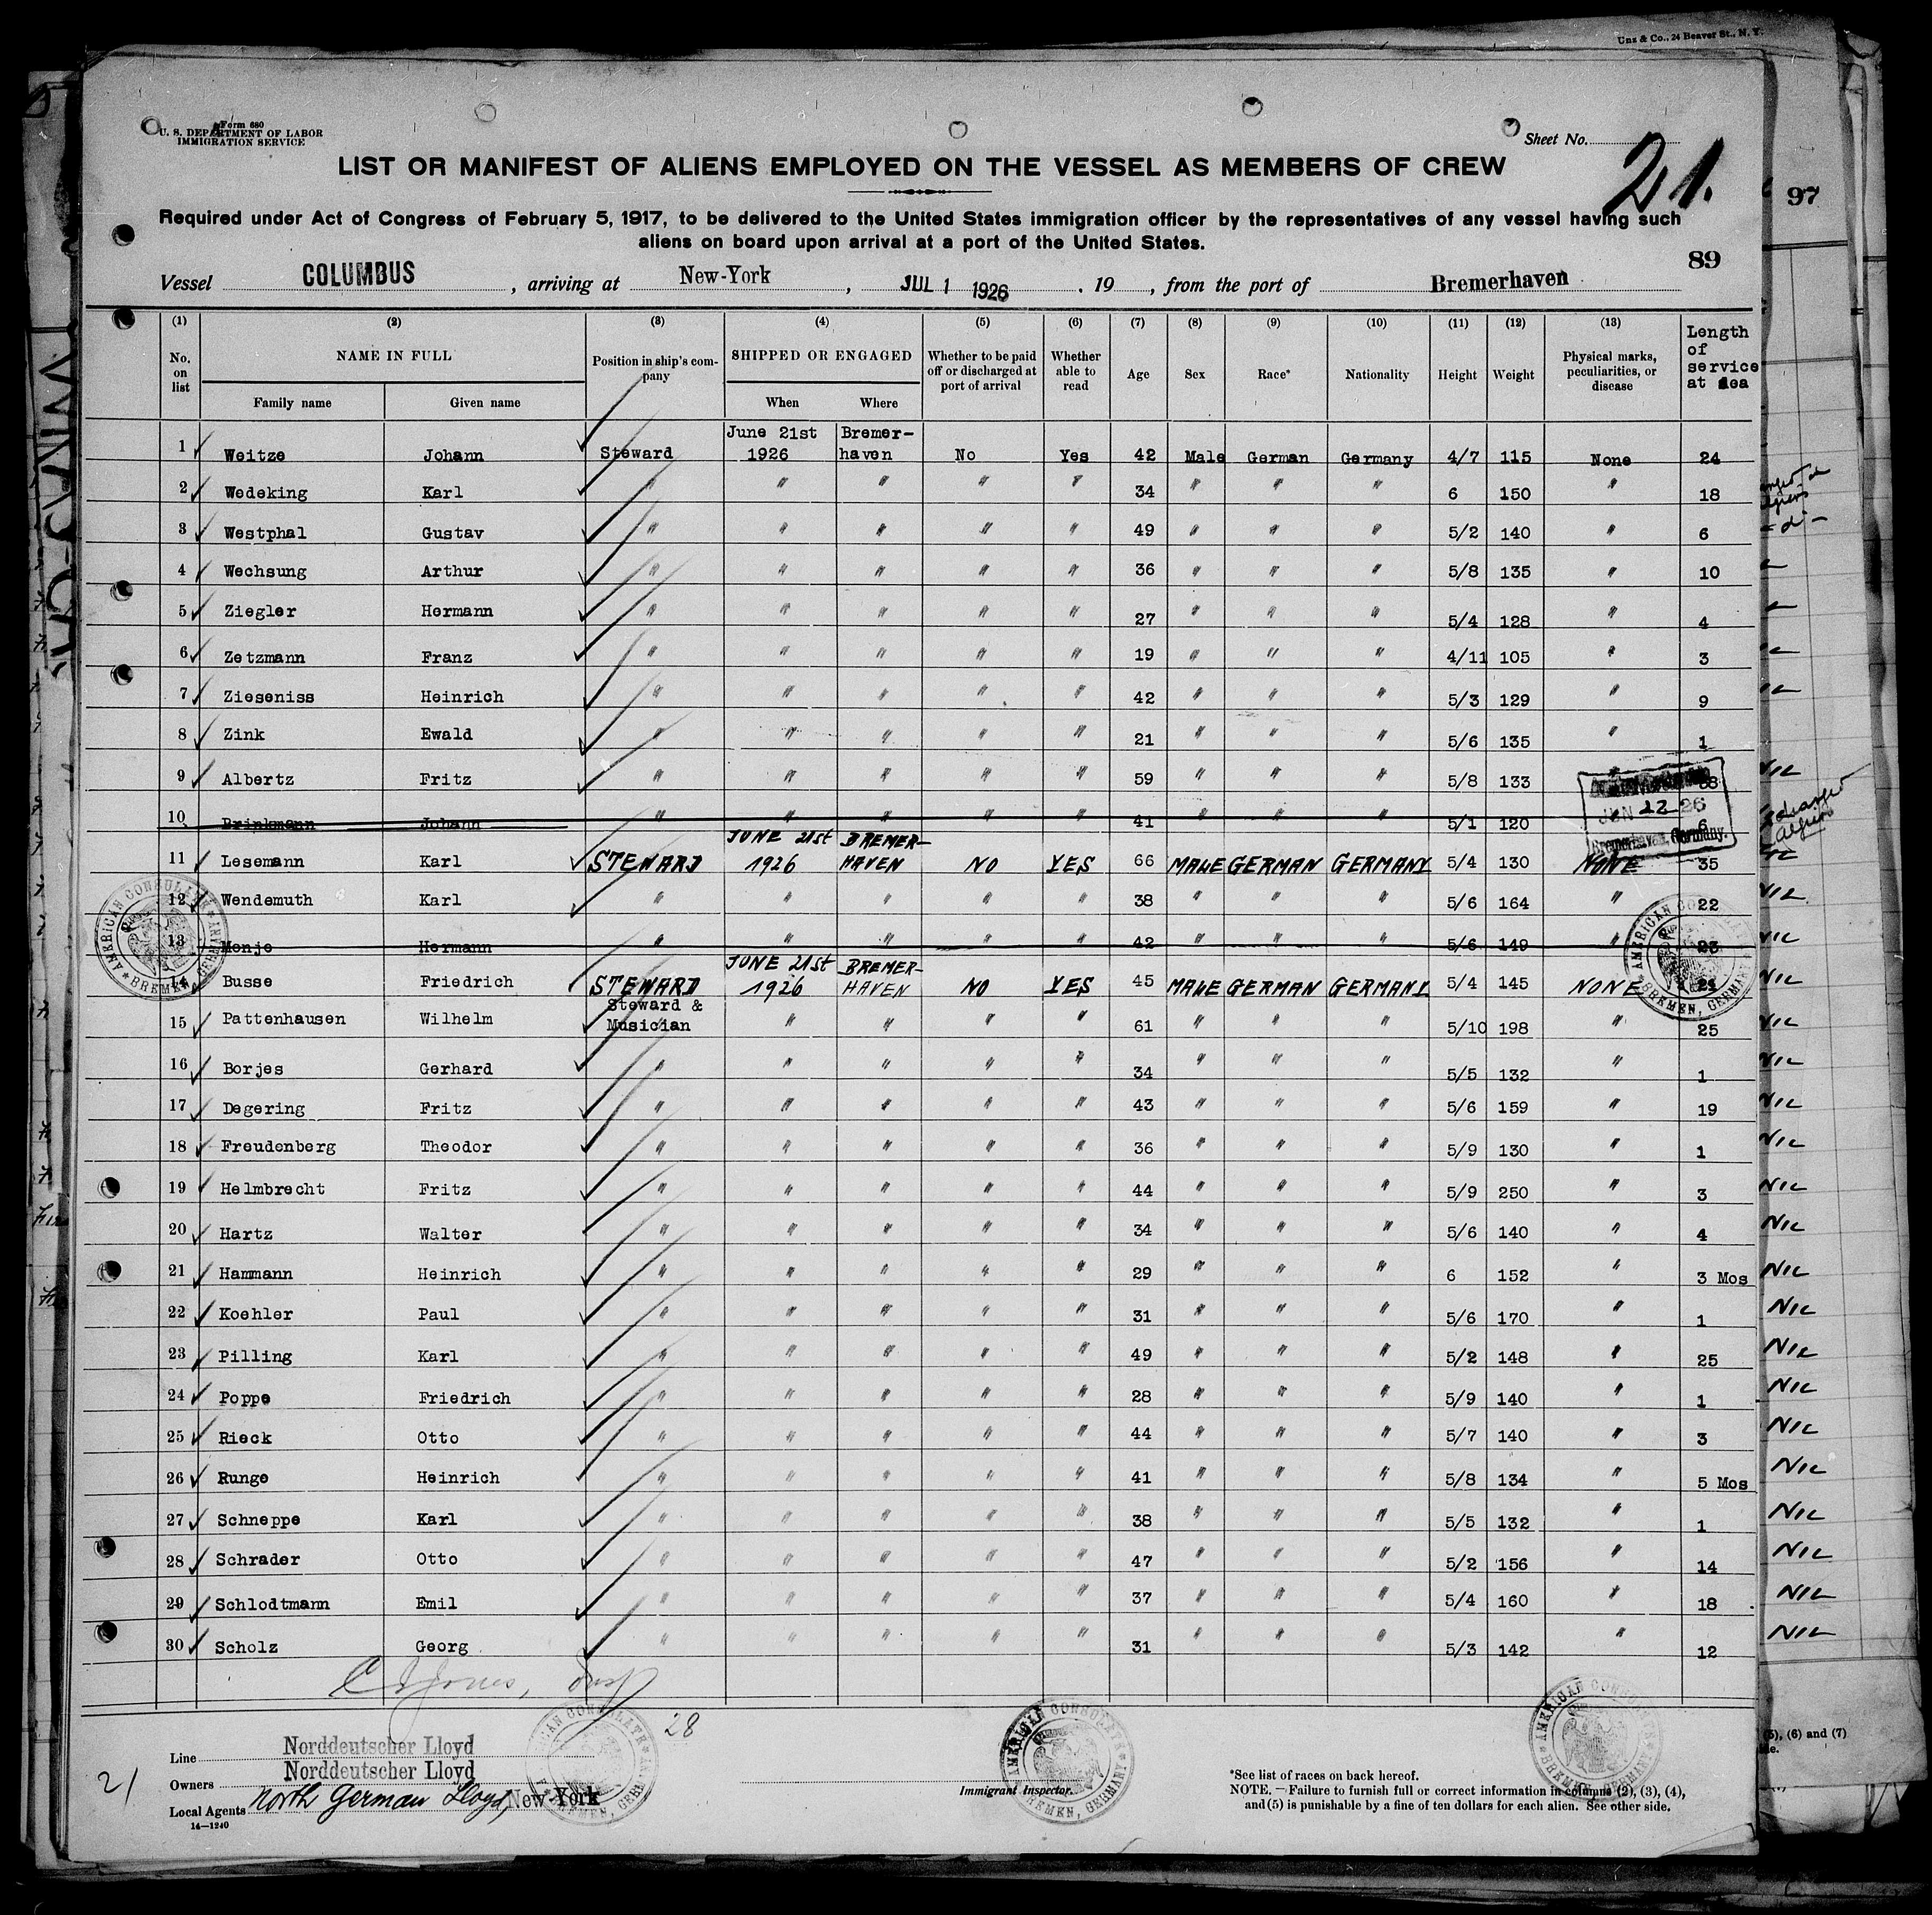 Unz & Co., 24 Beaver St., N. Y.
Form 680
U. S. DEPARTMENT OF LABOR
IMMIGRATION SERVICE
Sheet No. 21.
LIST OR MANIFEST OF ALIENS EMPLOYED ON THE VESSEL AS MEMBERS OF CREW
97
Required under Act of Congress of February 5, 1917, to be delivered to the United States immigration officer by the representatives of any vessel having such
aliens on board upon arrival at a port of the United States.
89
Vessel COLUMBUS, arriving at New-York, JUL 1 1926. 19 , from the port of Bremerhaven
(1) (2) (3) (4) (5) (6) (7) (8) (9) (10) (11) (12) (13) Length of service at sea
No. on list NAME IN FULL Position in ship's company SHIPPED OR ENGAGED Whether to be paid off or discharged at port of arrival Whether able to read Age Sex Race* Nationality Height Weight Physical marks, peculiarities, or disease
Family name Given name When Where
1 Weitze Johann Steward June 21st 1926 Bremer-haven No Yes 42 Male German Germany 4/7 115 None 24
2 Wedeking Karl " " " " " 34 " " " 6 150 " 18
3 Westphal Gustav " " " " " 49 " " " 5/2 140 " 6
4 Wechsung Arthur " " " " " 36 " " " 5/8 135 " 10
5 Ziegler Hermann " " " " " 27 " " " 5/4 128 " 4
6 Zetzmann Franz " " " " " 19 " " " 4/11 105 " 3
7 Zieseniss Heinrich " " " " " 42 " " " 5/3 129 " 9
8 Zink Ewald " " " " " 21 " " " 5/6 135 " 1
9 Albertz Fritz " " " " " 59 " " " 5/8 133 "
JUN 22 26
Bremerhaven, Germany.
10 Brinkmann Johann " " " " " 41 " " " 5/1 120 6
11 Lesemann Karl STEWARD JUNE 21st 1926 BREMER-HAVEN NO YES 66 MALE GERMAN GERMANY 5/4 130 NONE 35
12 Wendemuth Karl " " " " " 38 " " " 5/6 164 " 22
13 Monje Hermann " " " " " 42 " " " 5/6 149 " 23
14 Busse Friedrich STEWARD JUNE 21st 1926 BREMER-HAVEN NO YES 45 MALE GERMAN GERMANY 5/4 145 NONE 21
15 Pattenhausen Wilhelm Steward & Musician " " " " 61 " " " 5/10 198 " 25
16 Borjes Gerhard " " " " " 34 " " " 5/5 132 " 1
17 Degering Fritz " " " " " 43 " " " 5/6 159 " 19
18 Freudenberg Theodor " " " " " 36 " " " 5/9 130 " 1
19 Helmbrecht Fritz " " " " " 44 " " " 5/9 250 " 3
20 Hartz Walter " " " " " 34 " " " 5/6 140 " 4
21 Hammann Heinrich " " " " " 29 " " " 6 152 " 3 Mos
22 Koehler Paul " " " " " 31 " " " 5/6 170 " 1
23 Pilling Karl " " " " " 49 " " " 5/2 148 " 25
24 Poppe Friedrich " " " " " 28 " " " 5/9 140 " 1
25 Rieck Otto " " " " " 44 " " " 5/7 140 " 3
26 Runge Heinrich " " " " " 41 " " " 5/8 134 " 5 Mos
27 Schneppe Karl " " " " " 38 " " " 5/5 132 " 1
28 Schrader Otto " " " " " 47 " " " 5/2 156 " 14
29 Schlodtmann Emil " " " " " 37 " " " 5/4 160 " 18
30 Scholz Georg " " " " " 31 " " " 5/3 142 " 12
AMERICAN CONSULATE
BREMEN, GERMANY
28
Line Norddeutscher Lloyd
Owners Norddeutscher Lloyd
Local Agents North German Lloyd, New York
21
14—1240
Immigrant Inspector.
*See list of races on back hereof.
NOTE.—Failure to furnish full or correct information in columns (2), (3), (4),
and (5) is punishable by a fine of ten dollars for each alien. See other side.
(5), (6) and (7)